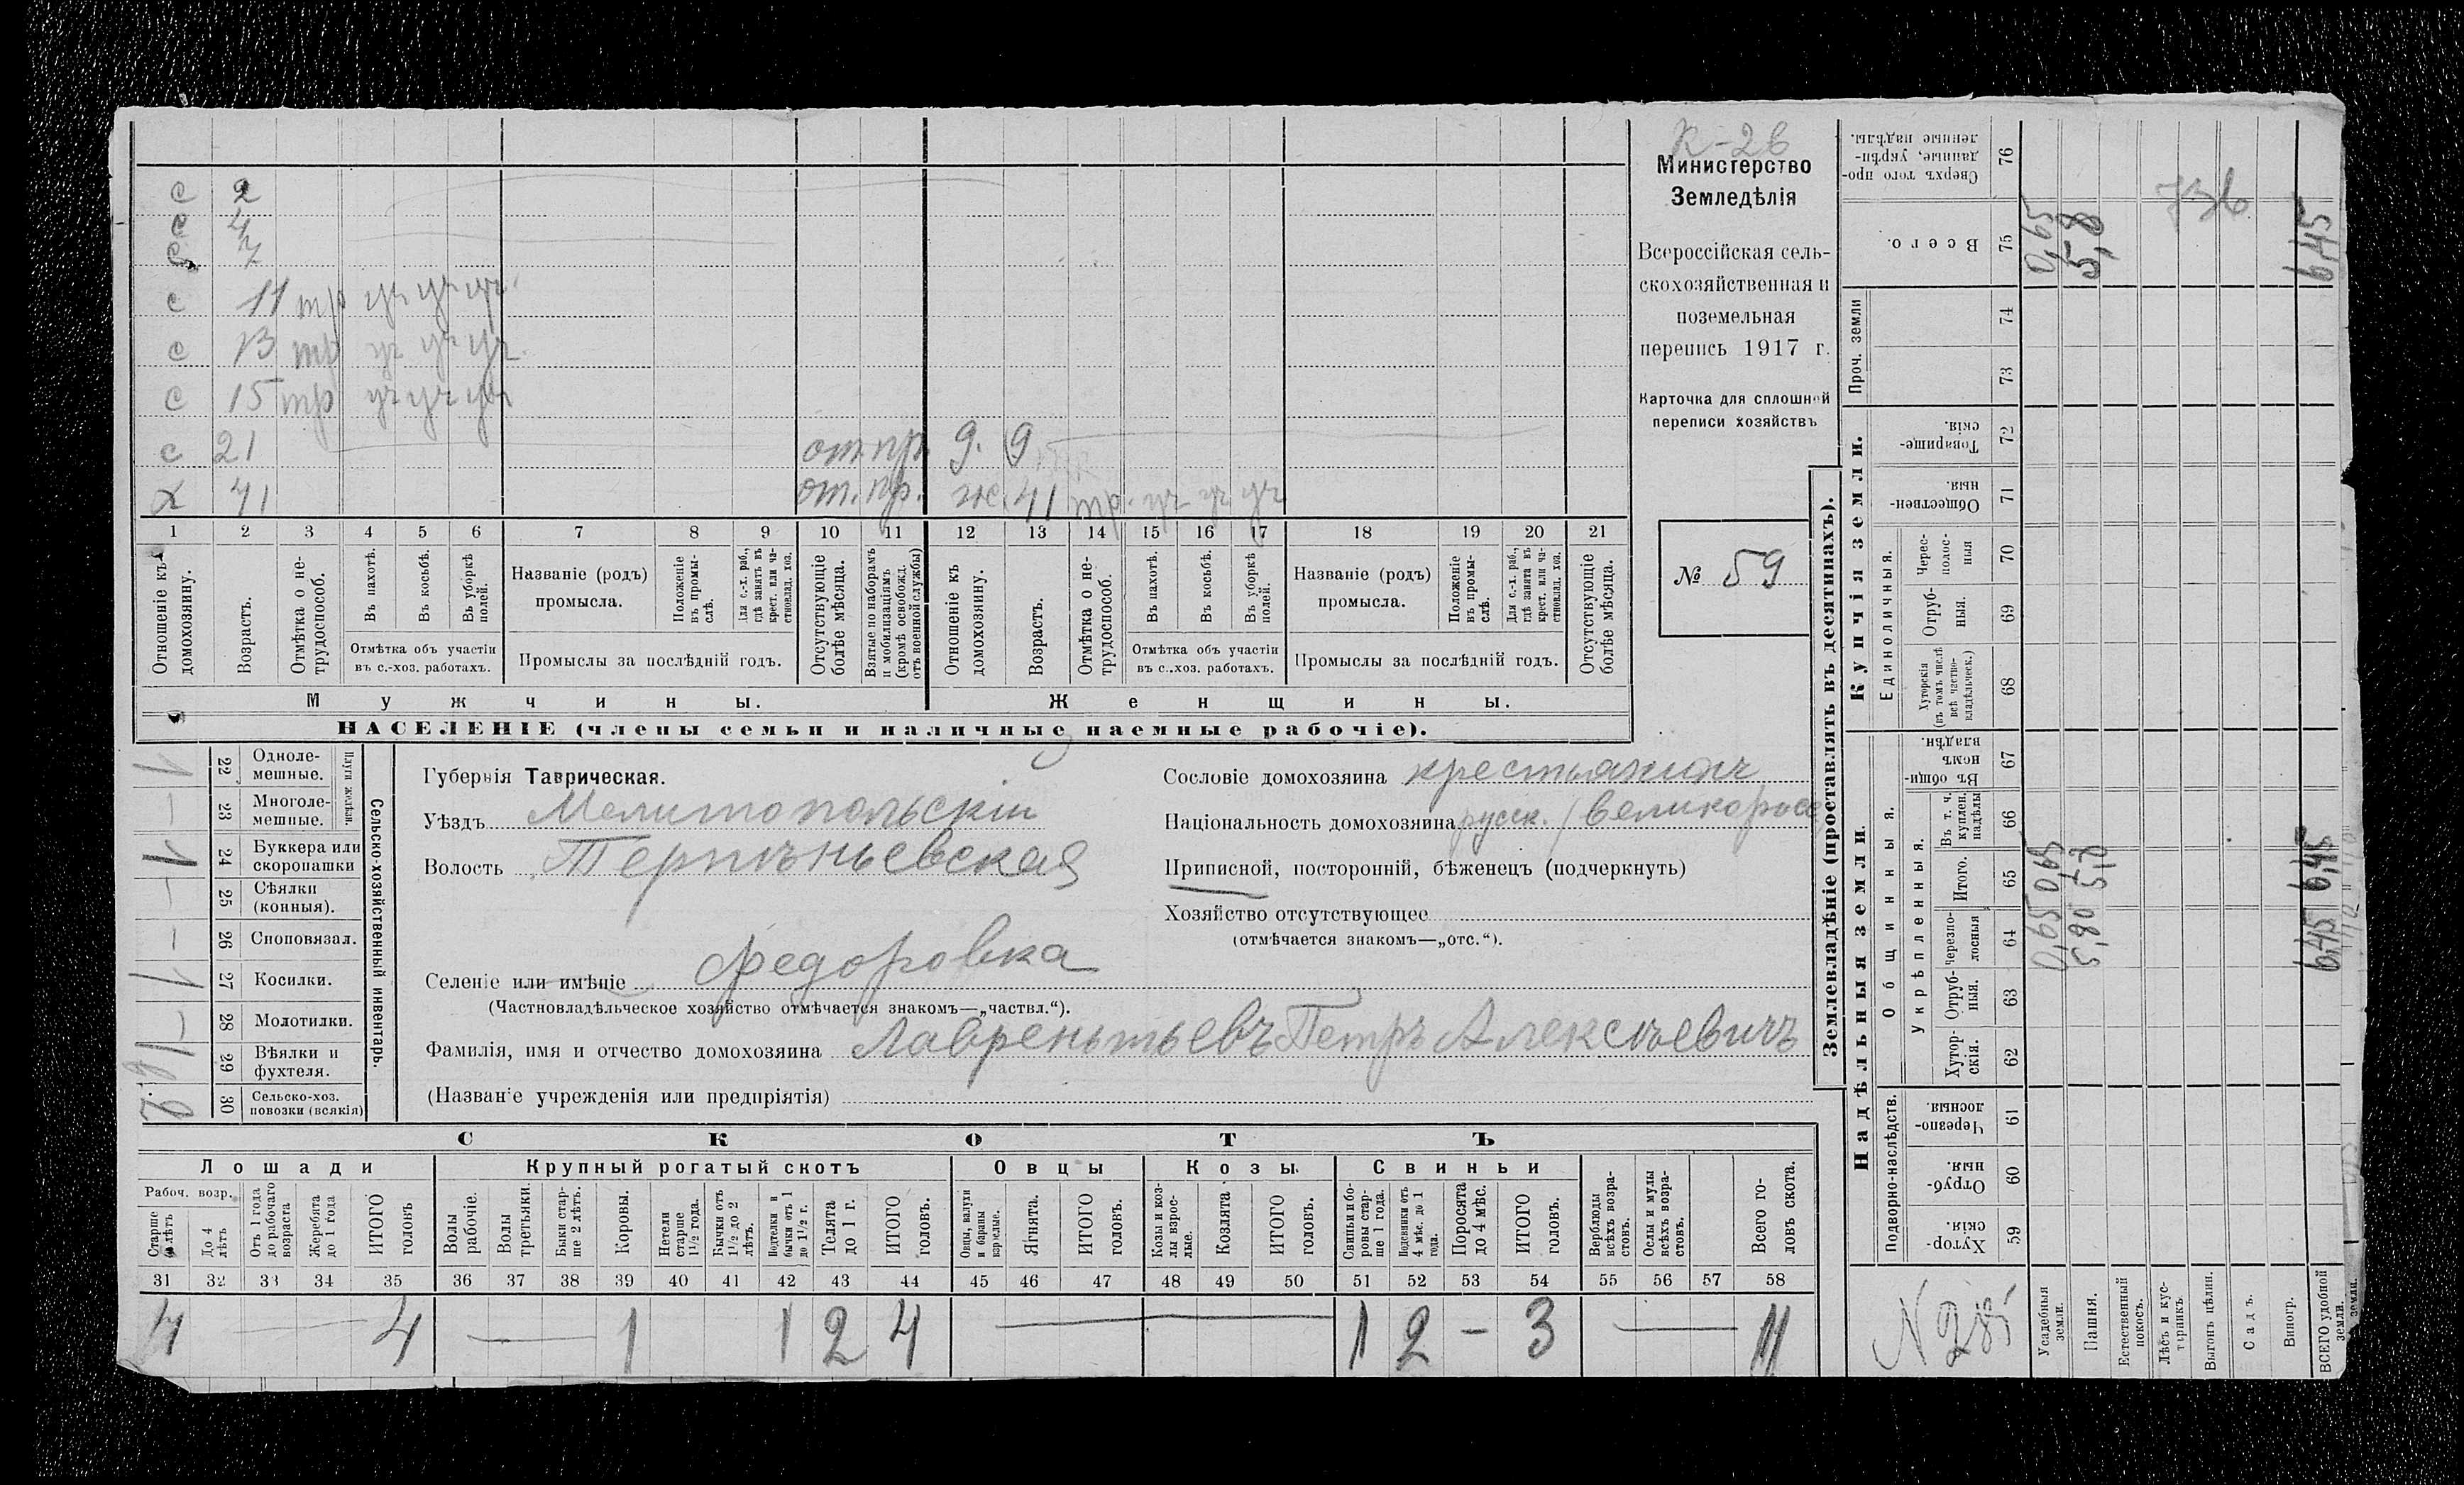 с 2
с 4
с 7
с 11 тр уч уч уч
с 13 тр уч уч уч
с 15 тр уч уч уч
с 21 от. пр. д. 9
х 41 от. пр. ж. 41 тр. уч уч уч
1 2 3 4 5 6 7 8 9 10 11 12 13 14 15 16 17 18 19 20 21
Отношеніе къ домохозяину.
Возрастъ.
Отмѣтка о не-трудоспособ.
Въ пахотѣ.
Въ косьбѣ.
Въ уборкѣ полей.
Отмѣтка объ участіи въ с.-хоз. работахъ.
Названіе (родъ) промысла.
Положеніе въ промы-слѣ.
Для с.-х. раб., гдѣ занятъ въ крест. или ча-стновлад. хоз.
Промыслы за послѣдній годъ.
Отсутствующіе болѣе мѣсяца.
Взятые по наборамъ и мобилизаціямъ (кромѣ освобожд. отъ военной службы)
Отношеніе къ домохозяину.
Возрастъ.
Отмѣтка о не-трудоспособ.
Въ пахотѣ.
Въ косьбѣ.
Въ уборкѣ полей.
Отмѣтка объ участіи въ с.-хоз. работахъ.
Названіе (родъ) промысла.
Положеніе въ промы-слѣ.
Для с.-х. раб., гдѣ занята въ крест. или ча-стновлад. хоз.
Промыслы за послѣдній годъ.
Отсутствующіе болѣе мѣсяца.
Мужчины.
Женщины.
НАСЕЛЕНІЕ (члены семьи и наличные наемные рабочіе).
К-2в
Министерство
Земледѣлія
Всероссійская сель-
скохозяйственная и
поземельная
перепись 1917 г.
Карточка для сплошной
переписи хозяйствъ
№ 59
Сельско-хозяйственный инвентарь.
Плуги желѣзн.
22 Одноле-мешные. 1
23 Многоле-мешные. —
24 Буккера или скоропашки 1
25 Сѣялки (конныя). —
26 Сноповязал. —
27 Косилки. 1
28 Молотилки. —
29 Вѣялки и фухтеля. 1
30 Сельско-хоз. повозки (всякія) 2
Губернія Таврическая.
Уѣздъ Мелитопольскій
Волость Терпѣньевская
Селеніе или имѣніе Федоровка
(Частновладѣльческое хозяйство отмѣчается знакомъ—„частвл.“).
Фамилія, имя и отчество домохозяина Лаврентьевъ Петръ Алексѣевичъ
(Названіе учрежденія или предпріятія)
Сословіе домохозяина крестьянинъ
Національность домохозяина русск. (великоросс
Приписной, посторонній, бѣженецъ (подчеркнуть)
Хозяйство отсутствующее
(отмѣчается знакомъ—„отс.“).
СКОТЪ
Лошади
Крупный рогатый скотъ
Овцы
Козы.
Свиньи
Рабоч. возр.
Старше 4 лѣтъ
До 4 лѣтъ
Отъ 1 года до рабочаго возраста
Жеребята до 1 года
ИТОГО головъ
Волы рабочіе.
Волы третьяки.
Быки стар-ше 2 лѣтъ.
Коровы.
Нетели старше 1½ года.
Бычки отъ 1½ до 2 лѣтъ.
Подтелки и бычки отъ 1 до 1½ г.
Телята до 1 г.
ИТОГО головъ.
Овцы, валухи и бараны взрослые.
Ягнята.
ИТОГО головъ.
Козы и коз-лы взрос-лые.
Козлята
ИТОГО головъ.
Свиньи и бо-ровы стар-ше 1 года.
Подсвинки отъ 4 мѣс. до 1 года.
Поросята до 4 мѣс.
ИТОГО головъ.
Верблюды всѣхъ возра-стовъ.
Ослы и мулы всѣхъ возра-стовъ.
Всего го-ловъ скота.
31 32 33 34 35 36 37 38 39 40 41 42 43 44 45 46 47 48 49 50 51 52 53 54 55 56 57 58
4 — 4 — 1 1 2 4 — 1 2 — 3 — 11
Землевладѣніе (проставлять въ десятинахъ).
Надѣльныя земли.
Купчія земли.
Проч. земли
Подворно-наслѣдств.
Общинныя.
Укрѣпленныя.
Единоличныя.
59 Хутор-скія.
60 Отруб-ныя.
61 Черезпо-лосныя.
62 Хутор-скія.
63 Отруб-ныя.
64 черезпо-лосныя
65 Итого.
66 Въ т. ч. куплен. надѣлы
67 Въ общи-номъ владѣн.
68 Хуторскія (въ томъ числѣ всѣ частно-владѣльческ.)
69 Отруб-ныя.
70 Черес-полос-ныя
71 Обществен-ныя.
72 Товарище-скія.
73
74
75 Всего.
76 Сверхъ того про-данные, укрѣп-ленные надѣлы.
Усадебныя земли. 0,65 0,65 0,65
Пашня. 5,80 5,8 5,8
Естественный покосъ.
Лѣсъ и кус-тарникъ.
Выгонъ цѣлин.
Садъ.
Виногр.
ВСЕГО удобной земли. 6,45 6,45 6,45